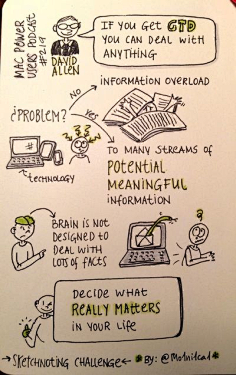 MAC POWER
USERS PODCAST
#219
DAVID
ALLEN
IF YOU GET GTD
YOU CAN DEAL WITH
ANYTHING
¿PROBLEM?
NO
INFORMATION OVERLOAD
YES
TECHNOLOGY
TO MANY STREAMS OF
POTENTIAL
MEANINGFUL
INFORMATION
BRAIN IS NOT
DESIGNED TO
DEAL WITH
LOTS OF FACTS
DECIDE WHAT
REALLY MATTERS
IN YOUR LIFE
→SKETCHNOTING CHALLENGE←
BY: